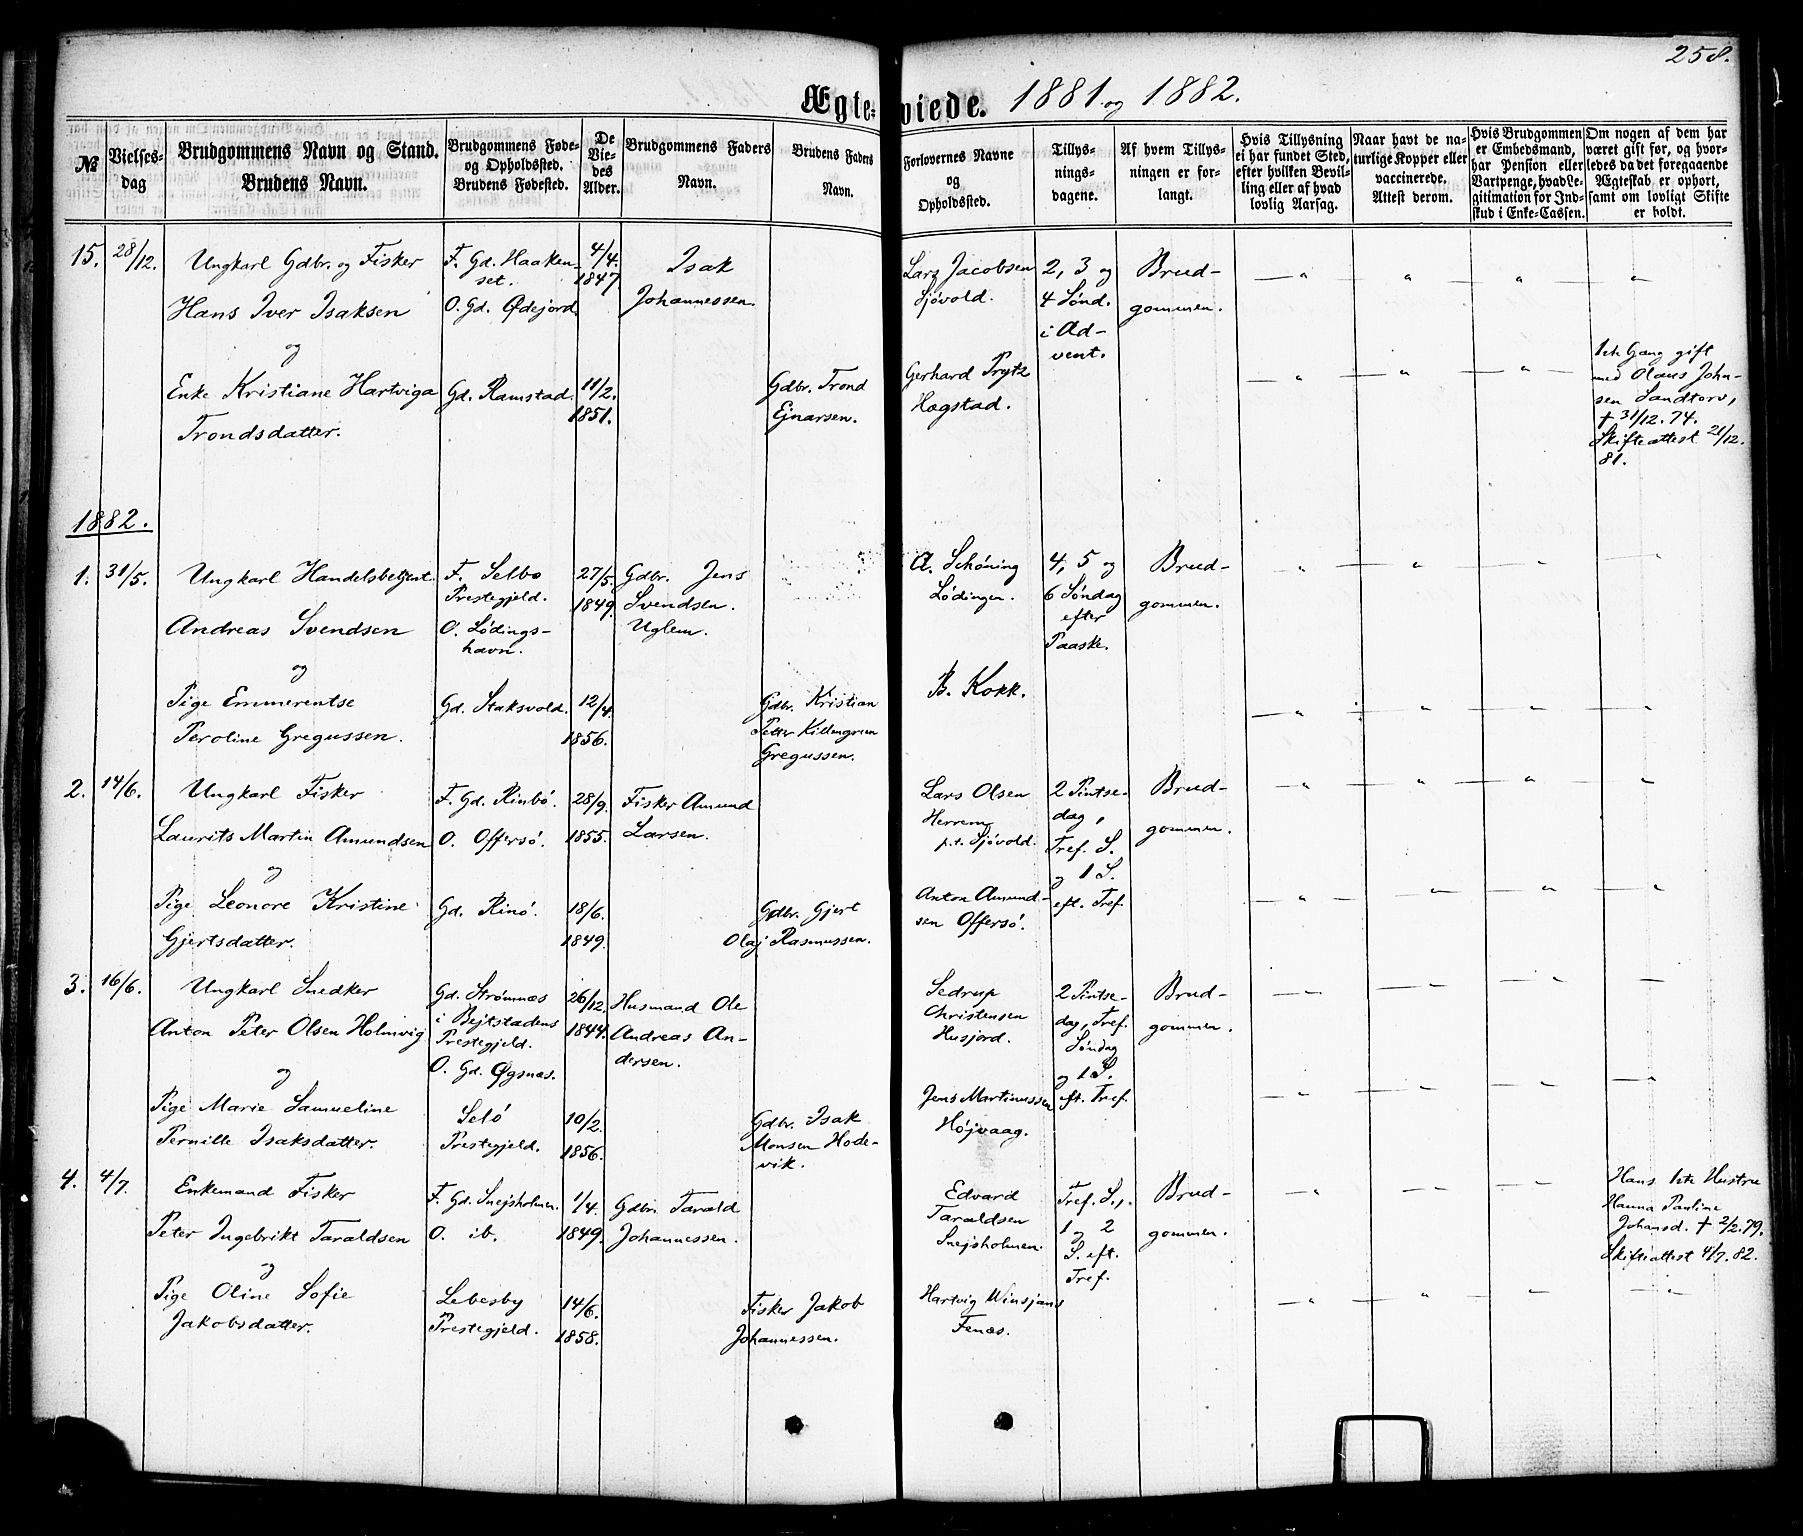 258.
Ægteviede. 1881 og 1882.
№
Vielses-
dag
Brudgommens Navn og Stand.
Brudens Navn.
Brudgommens Føde-
og Opholdssted.
Brudens Fødested.
De
Vie-
des
Alder.
Brudgommens Faders
Navn.
Brudens Faders
Navn.
Forlovernes Navne
og
Opholdssted.
Tillys-
nings-
dagene.
Af hvem Tillys-
ningen er for-
langt.
Hvis Tillysning
ei har fundet Sted,
efter hvilken Bevil-
ling eller af hvad
lovlig Aarsag.
Naar havt de na-
turlige Kopper eller
vaccinerede.
Attest derom.
Hvis Brudgommen
er Embedsmand,
har Pension eller
Vartpenge, hvad Le-
gitimation for Ind-
skud i Enke-Cassen.
Om nogen af dem har
været gift før, og hvor-
ledes da det foregaaende
Ægteskab er ophørt,
samt om lovligt Skifte
er holdt.
15. 28/12.
Ungkarl Gdbr. og Fisker
Hans Iver Isaksen
og
Enke Kristiane Hartviga
Trondsdatter.
F. Gd. Haaken-
set.
O. Gd. Ødejord.
Gd. Ramstad.
4/4.
1847
11/2.
1851.
Isak
Johannessen.
Gdbr. Trond
Ejnarsen.
Lars Jacobsen
Sjøvold.
Gerhard Prytz
Hægstad.
2, 3 og
4 Sønd.
i Ad-
vent.
Brud-
gommen.
1ste Gang gift
med Olaus John-
sen Sandtorv,
† 31/12. 74.
Skifteattest 21/12.
81.
1882.
1. 31/5.
Ungkarl Handelsbetjent
Andreas Svendsen
og
Pige Emmerentse
Peroline Gregussen.
F. Selbo
Prestegjeld.
O. Lødings-
havn.
Gd. Staksvold.
27/5.
1849.
12/4.
1856.
Gdbr. Jens
Svendsen.
Uglem.
Gdbr. Kristian
Petter Killengreen
Gregussen.
A. Schøning
Lødingen.
B. Kokk.
4, 5 og
6 Søndag
efter
Paaske.
Brud-
gommen.
2. 14/6.
Ungkarl Fisker
Laurits Martin Amundsen
og
Pige Leonore Kristine
Gjertsdatter.
F. Gd. Rinbø.
O. Offersø.
Gd. Rinø.
28/9.
1855.
18/6.
1849.
Fisker Amund
Larsen.
Gdbr. Gjert
Olaj Rasmussen.
Lars Olsen
Herrem
p.t. Sjøvold.
Anton Amund-
sen Offersø.
2 Pintse-
dag,
Tref. S.
og 1 S.
eft. Tref.
Brud-
gommen.
3. 16/6.
Ungkarl Snedker
Anton Peter Olsen Holmvig
og
Pige Marie Samueline
Pernille Isaksdatter.
Gd. Strømnæs
i Bejtstadens
Prestegjeld.
O. Gd. Øgsnæs.
Selø
Prestegjeld.
26/12.
1844.
10/2.
1856.
Husmand Ole
Andreas An-
dersen.
Gdbr. Isak
Monsen Hode-
vik.
Sedrup
Christensen
Husjord.
Jens Martinussen
Højvaag.
2 Pintse-
dag, Tref.
Søndag
og 1 S.
eft. Tref.
Brud-
gommen.
4. 4/7.
Enkemand Fisker
Peter Ingebrikt Taraldsen
og
Pige Oline Sofie
Jakobsdatter.
F. Gd. Snejsholmen.
O. ib.
Lebesby
Prestegjeld.
1/4.
1849.
14/6.
1858.
Gdbr. Tarald
Johannessen.
Fisker Jakob
Johannessen.
Edvard
Taraldsen
Snejsholmen.
Hartvig
Fenæs.
Tref. S.,
1 og 2
S. eft.
Tref.
Brud-
gommen.
Hans 1ste Hustru
Hanna Pauline
Johansd. † 2/2. 79.
Skifteattest 4/7. 82.